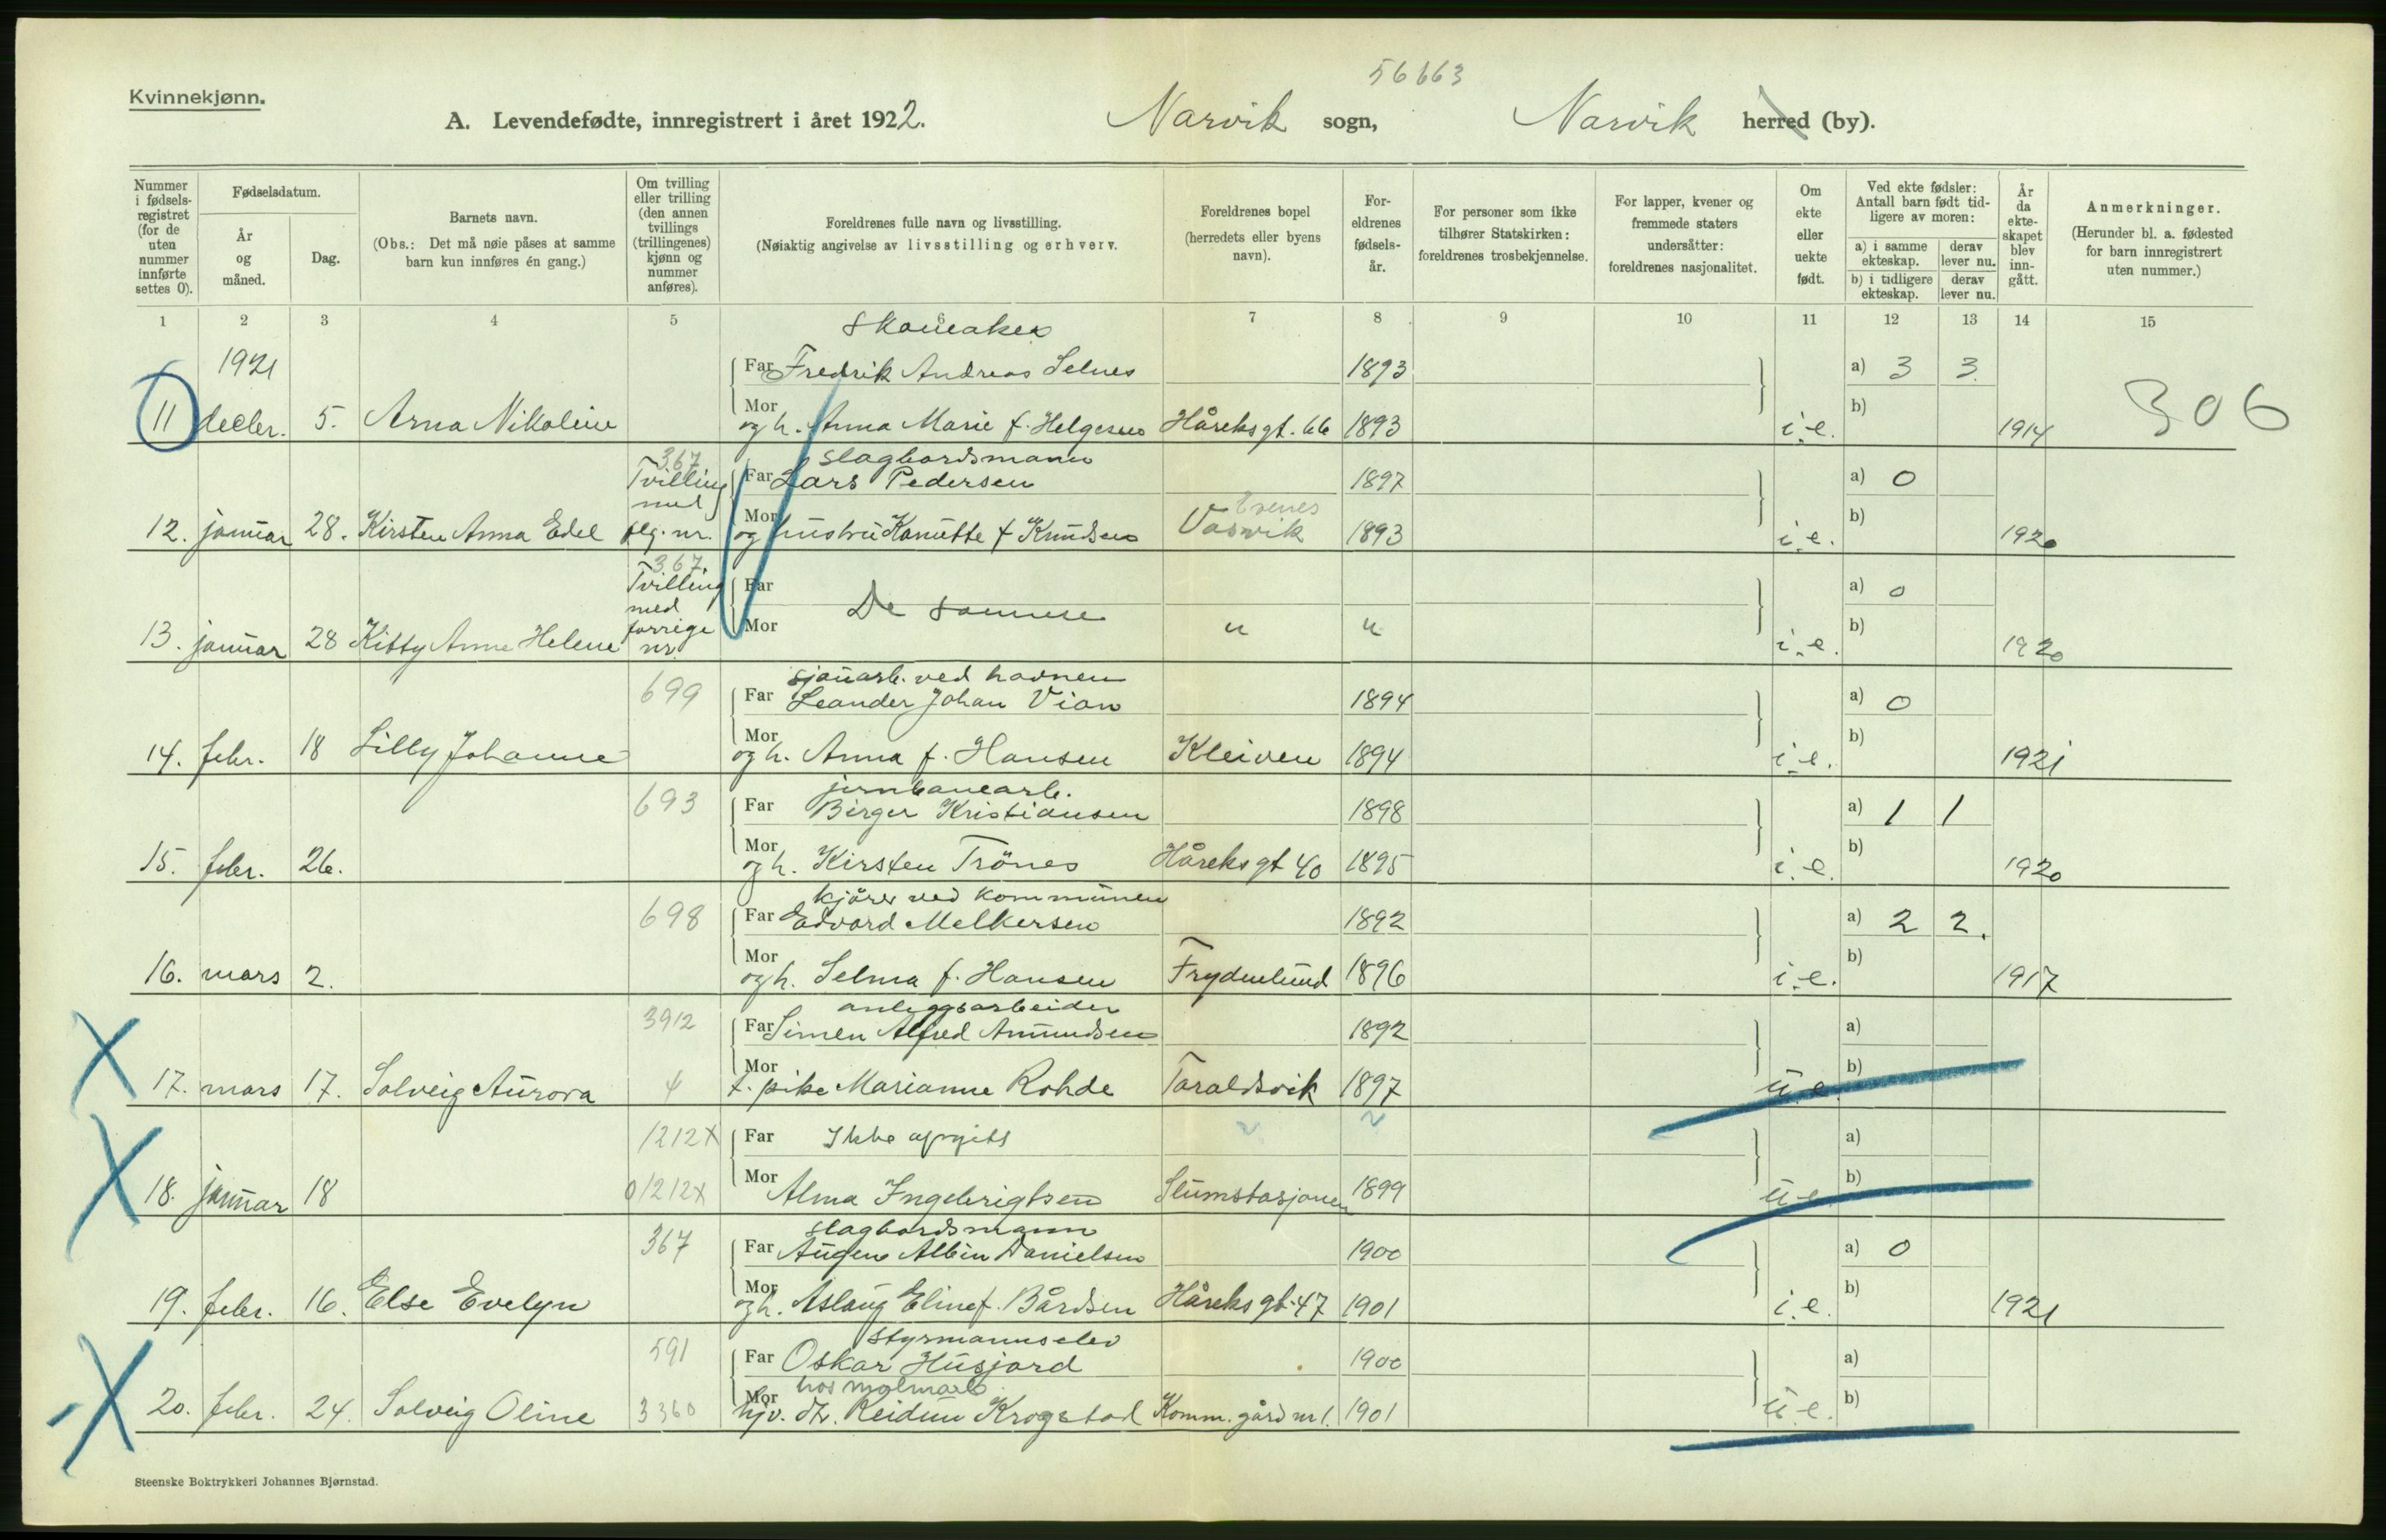 56663
Kvinnekjønn.
A. Levendefødte, innregistrert i året 1922. Narvik sogn, Narvik herred (by).
Nummer i fødselsregistret (for de uten nummer innførte settes 0).
Fødselsdatum.
År og måned.
Dag.
Barnets navn.
(Obs.: Det må nøie påses at samme barn kun innføres én gang.)
Om tvilling eller trilling (den annen tvillings (trillingenes) kjønn og nummer anføres).
Foreldrenes fulle navn og livsstilling.
(Nøiaktig angivelse av livsstilling og erhverv.
Foreldrenes bopel (herredets eller byens navn).
Foreldrenes fødselsår.
For personer som ikke tilhører Statskirken: foreldrenes trosbekjennelse.
For lapper, kvener og fremmede staters undersåtter: foreldrenes nasjonalitet.
Om ekte eller uekte født.
Ved ekte fødsler: Antall barn født tidligere av moren:
a) i samme ekteskap. derav lever nu.
b) i tidligere ekteskap. derav lever nu.
År da ekteskapet blev inngått.
Anmerkninger.
(Herunder bl. a. fødested for barn innregistrert uten nummer.)
1 2 3 4 5 6 7 8 9 10 11 12 13 14 15
skomaker
1921 Far Fredrik Andreas Selnes 1893 a) 3 3
Mor b) 306
11 decbr. 5. Arna Nikoline og h. Anna Marie f. Helgesen Håreksgt. 66 1893 i.e. 1914
367 slagbordsmann
Tvilling Far Lars Pedersen 1897 a) 0
med Mor Evenes b)
12. januar 28. Kirsten Anna Edel flg. nr. og hustru Kanutte f Knudsen Vasvik 1893 i.e. 1920
367.
Tvilling Far a) 0
med De samme
forrige Mor " " b)
13. januar 28 Kitty Anne Helene nr. i.e. 1920
sjauarb. ved havnen
699 Far Leander Johan Vian 1894 a) 0
Mor b)
14. febr. 18 Lilly Johanne og h. Anna f. Hansen Kleiven 1894 i.e. 1921
jernbanearb.
693 Far Birger Kristiansen 1898 a) 1 1
Mor b)
15. febr. 26. og h. Kirsten Trönes Håreksgt 40 1895 i.e. 1920
kjörer ved kommunen
698 Far Edvard Melkersen 1892 a) 2 2.
Mor b)
16. mars 2. og h. Selma f. Hansen Frydenlund 1896 i.e. 1917
anleggsarbeider
3912 Far Simen Alfred Amundsen 1892 a)
Mor b)
17. mars 17. Solveig Aurora 4 t. pike Marianne Rohde Taraldsvik 1897 u.e.
1212X Far Ikke opgitt a)
Mor b)
18. januar 18 01212X Alma Ingebrigtsen Slumstasjonen 1899 u.e.
slagbordsmann
367 Far Augen Albin Danielsen 1900 a) 0
Mor b)
19. febr. 16. Else Evelyn og h. Aslaug Eline f. Bårdsen Håreksgt. 47 1901 i.e. 1921
styrmannselev
591 Far Oskar Husjord 1900 a)
Mor hos b)
20. febr. 24. Solveig Oline 3360 hjv. dtr. Reidun Krogstad Komm. gård nr 1. 1901 u.e.
Steenske Boktrykkeri Johannes Bjørnstad.